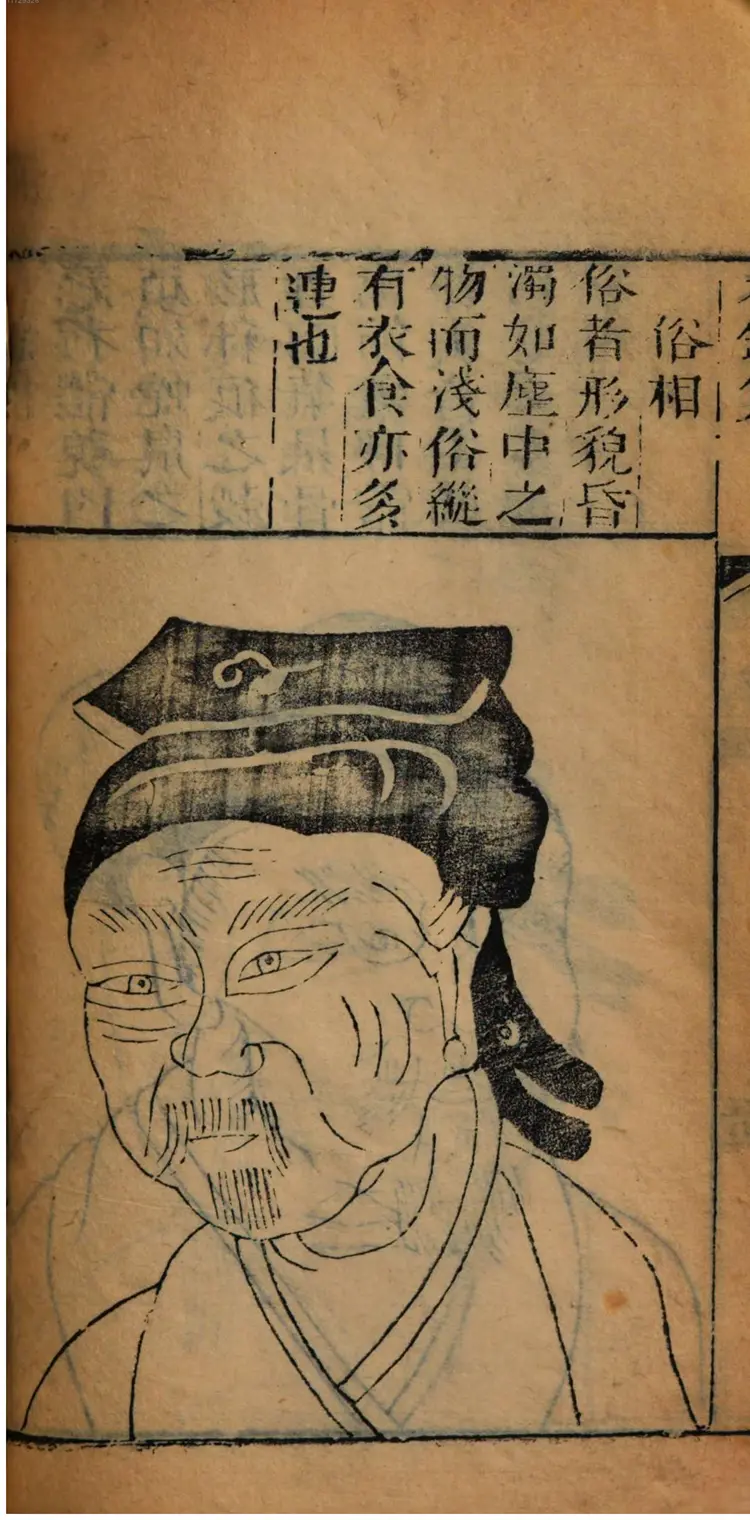 俗相
俗者形貌昏
濁如塵中之
物而淺俗縱
有衣食亦多
迍也